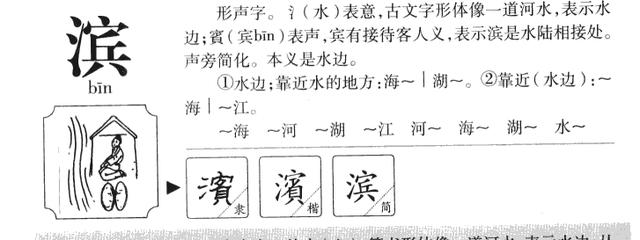 滨
bīn
形声字。氵(水)表意,古文字形体像一道河水,表示水
边;賓(宾bīn)表声,宾有接待客人义,表示滨是水陆相接处。
声旁简化。本义是水边。
①水边;靠近水的地方:海~|湖~。②靠近(水边):~
海|~江。
~海 ~河 ~湖 ~江 河~ 海~ 湖~ 水~
濱 隶 濱 楷 滨 简